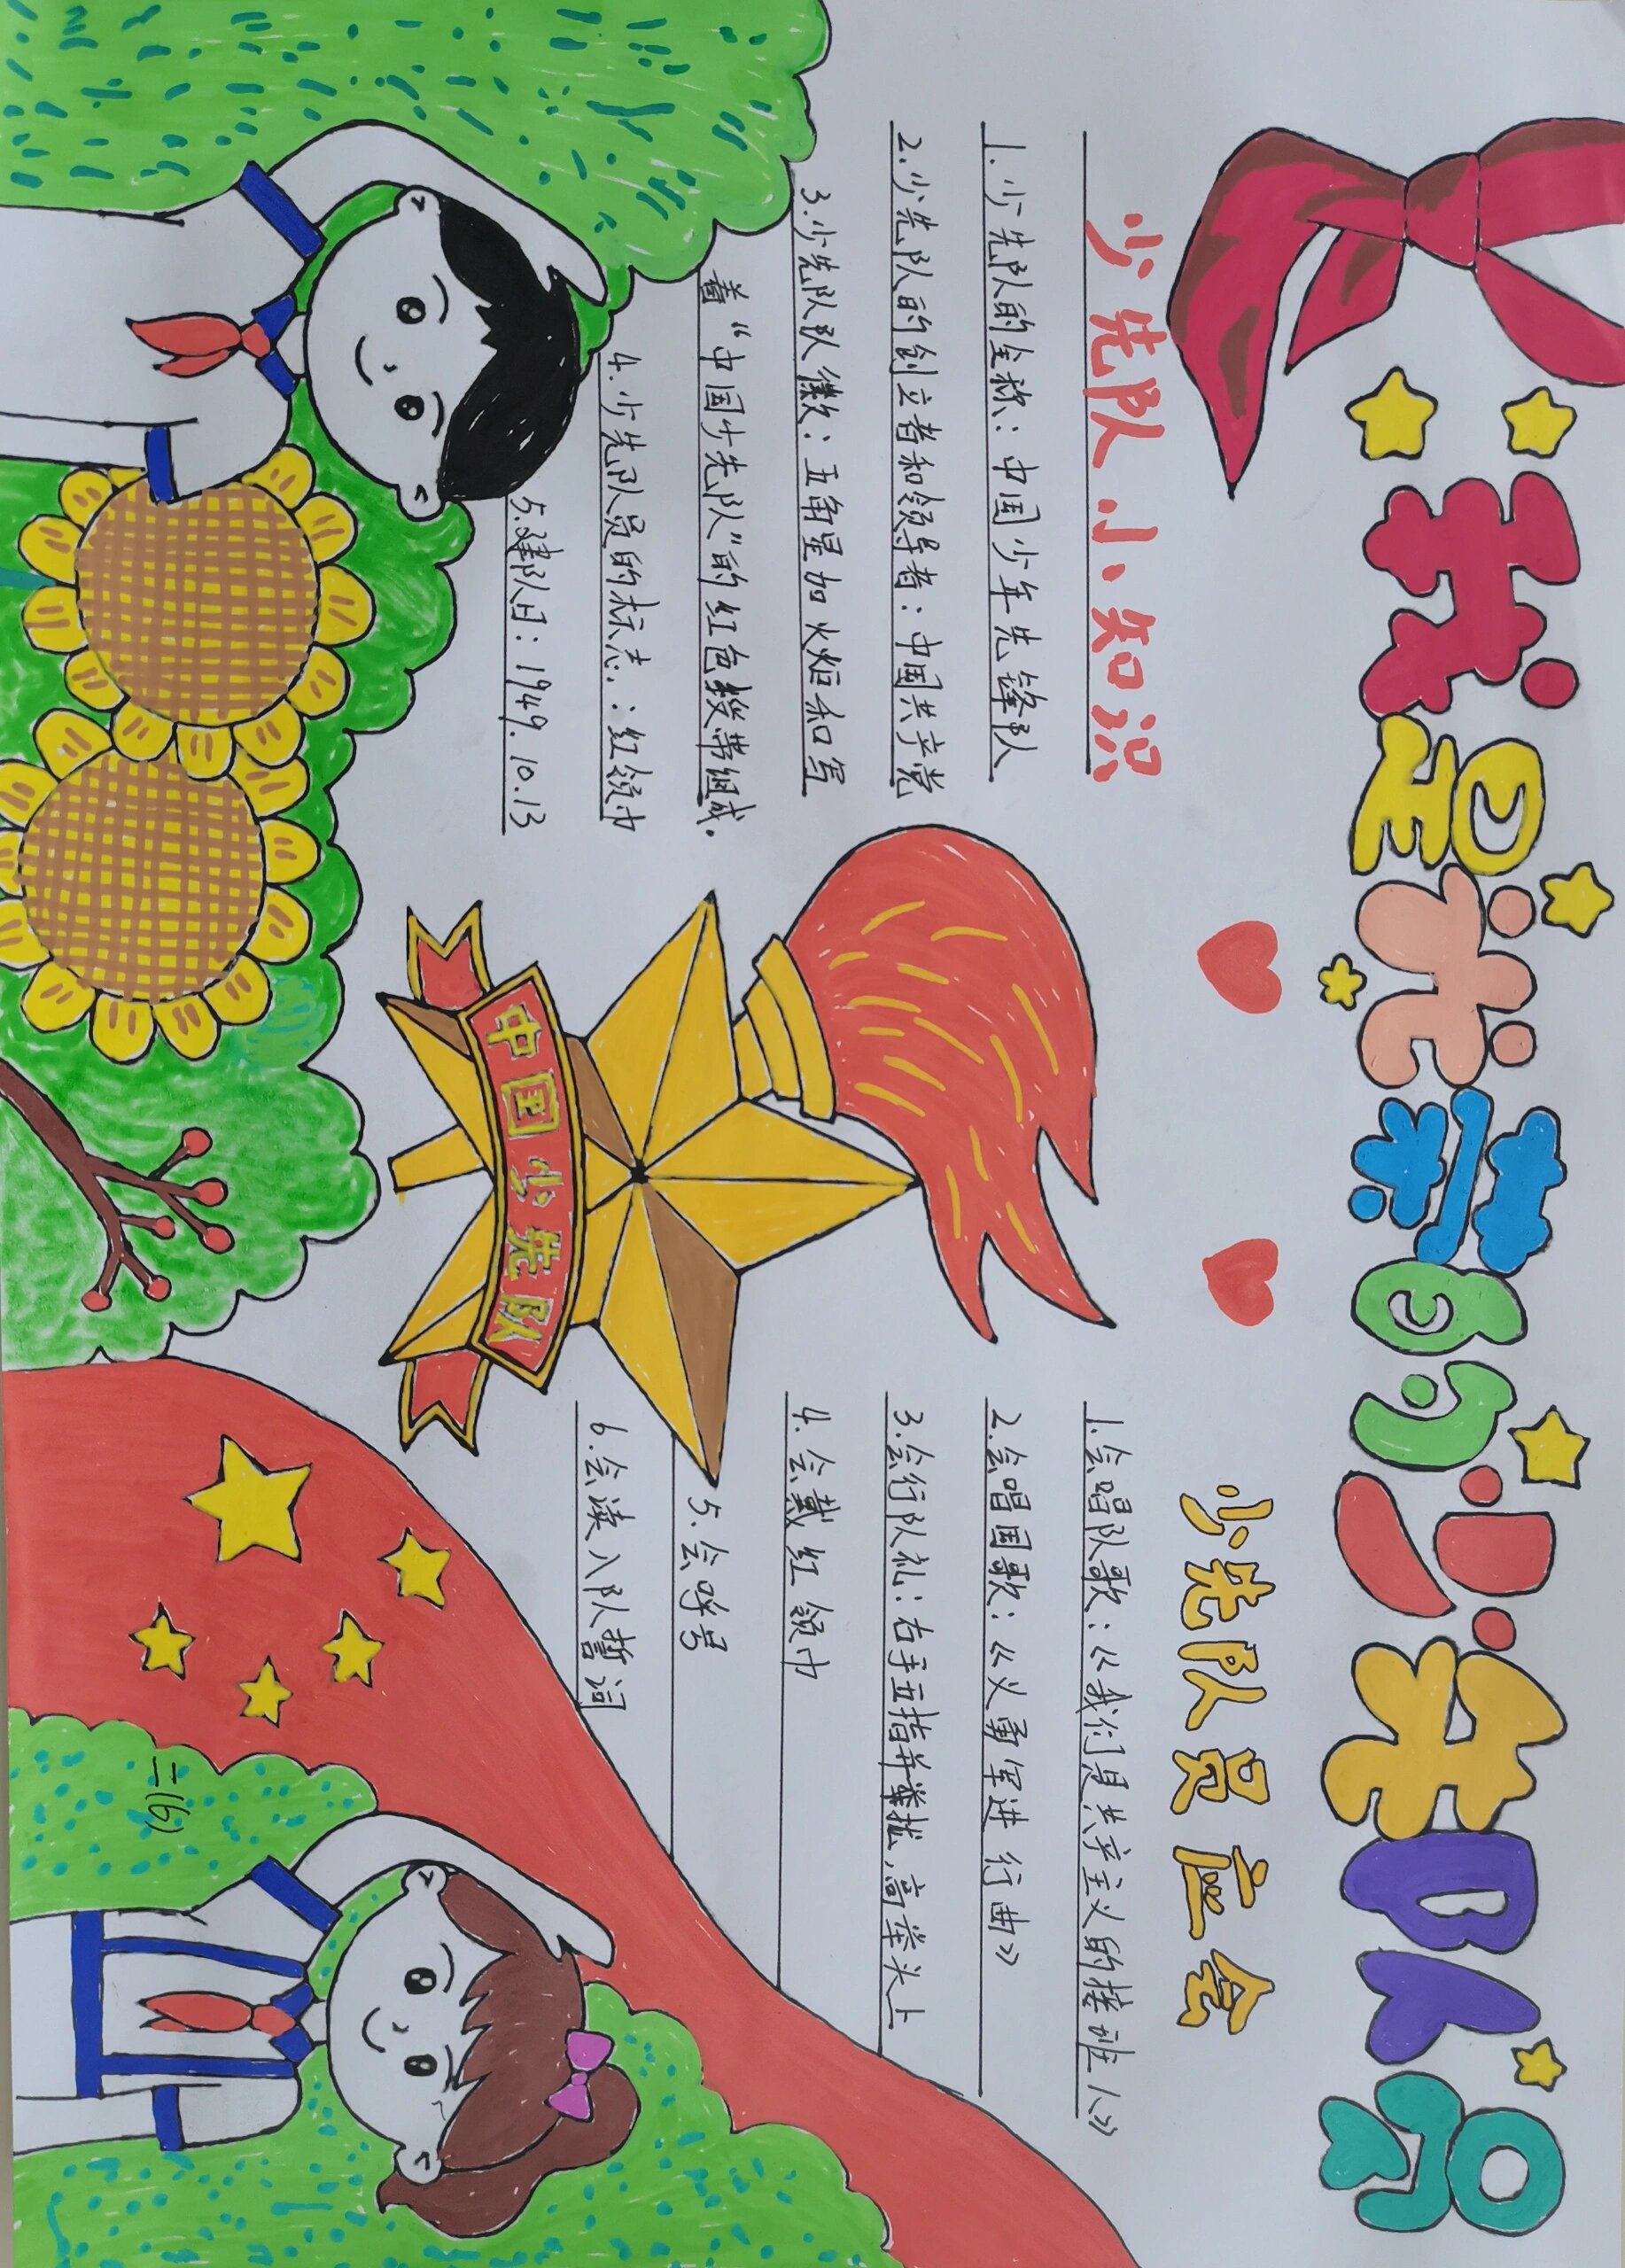 我是光荣的少先队员
少先队小知识
1.少先队的全称：中国少年先锋队
2.少先队的创立者和领导者：中国共产党
3.少先队队徽：五角星加火炬和写
着“中国少先队”的红色授带组成.
4.少先队员的标志：红领巾
5.建队日：1949.10.13
中国少先队
少先队员应会
1.会唱队歌：《我们是共产主义的接班人》
2.会唱国歌：《义勇军进行曲》
3.会行队礼：右手五指并拢,高举头上
4.会戴红领巾
5.会呼号
6.会读入队誓词
二(6)